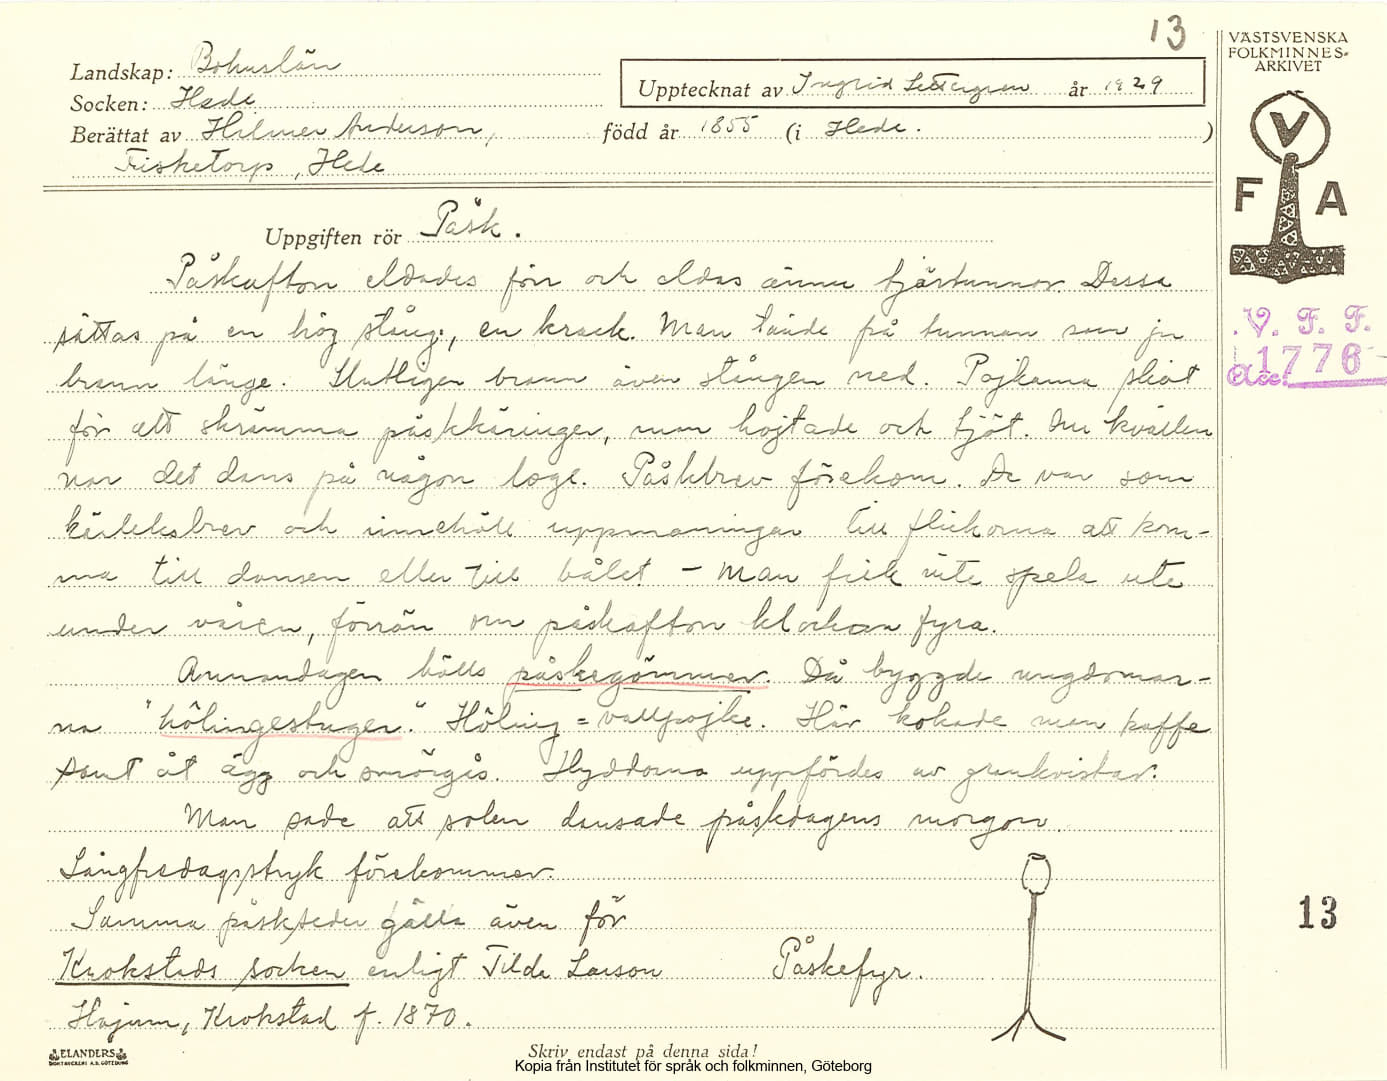 13
VÄSTSVENSKA
FOLKMINNES-
ARKIVET
Landskap: Bohuslän
Upptecknat av Ingrid Settergren år 1929
Socken: Hede
Berättat av Hilmer Anderson, född år 1855 (i Hede. )
Fisketorp, Hede
V
F A
Uppgiften rör Påsk.
Påskafton eldades förr och eldas ännu tjärtunnor. Dessa
sättas på en hög stång, en krack. Man tände på tunnan som ju
brann länge. Slutligen brann även stången ned. Pojkarna sköt
för att skrämma påskkäringer, man hojtade och tjöt. Om kvällen
var det dans på någon loge. Påskbrev förekom. De var som
kärleksbrev och innehöll uppmaningar till flickorna att kom-
ma till dansen eller till bålet – Man fick inte spela ute
under våren, förrän om påskafton klockan fyra.
Annandagen hölls påskegömmer. Då byggde ungdomar-
na "hölingestuger." Höling = vallpojke. Här kokade man kaffe
samt åt ägg och smörgås. Hyddorna uppfördes av grankvistar.
Man sade att solen dansade påskdagens morgon.
Långfredagsstryk förekommer.
Samma påskseder gälla även för
Krokstads socken enligt Tilda Larson
Hajum, Krokstad f. 1870.
Påskefyr.
V. F. F.
Acc. 1776
13
ELANDERS
BOKTRYCKERI A.B. GÖTEBORG
Skriv endast på denna sida!
Kopia från Institutet för språk och folkminnen, Göteborg